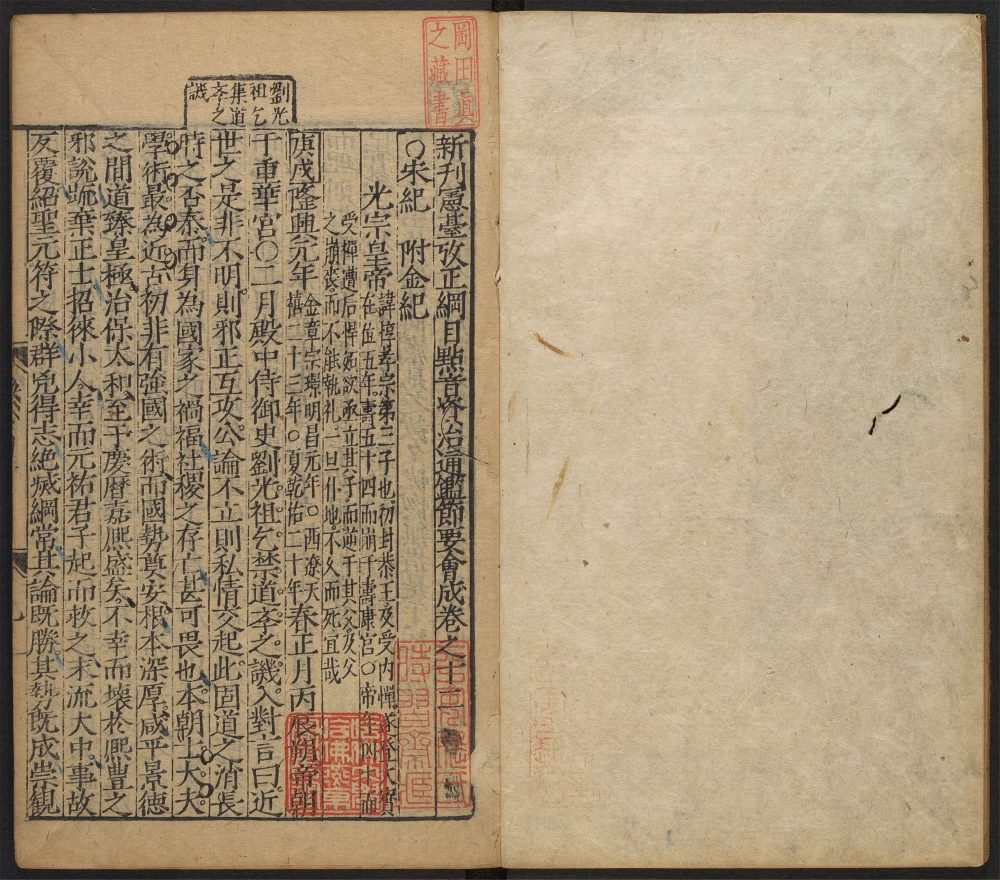 岡田眞
之藏書
劉光
祖乞
集道
李之
譏
新刊憲臺攷正綱目點音資治通鑑節要會成卷之十二
○宋紀 附金紀
光宗皇帝 諱惇孝宗第三子也初封恭王及受内禪遂登大寶
在位五年壽五十四而崩于壽康宮○帝年四十而
受禪遭后悍妬欲亟立其子而逆于其父及父
之崩喪而不能執礼一旦仆地不久而死宜哉
庚戌隆興元年 金章宗璟明昌元年○西遼天
禧二十三年○夏乾佑二十年 春正月丙辰朔帝朝
于重華宮○二月殿中侍御史劉光祖乞禁道李之譏入對言曰近
世之是非不明則邪正互攻公論不立則私情交起此固道之消長
時之否泰而身為國家之禍福社稷之存亡甚可畏也本朝士大夫
學術最為近古初非有強國之術而國勢奠安根本深厚咸平景德
之間道臻皇極治保太和至于慶曆嘉熈盛矣不幸而壊於熈豊之
邪説䟽棄正士招徠小人幸而元祐君子起而救之末流大中事故
反覆紹聖元符之際群兇得志絶滅綱常其論既勝其勢既成崇観